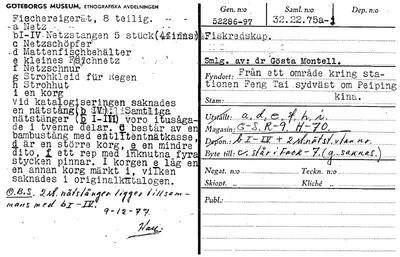 GÖTEBORGS MUSEUM, ETNOGRAFISKA AVDELNINGEN
Fischereigerät, 8 teilig.
a Netz
bI-IV Netzstangen 5 stück (4 finns)
c Netzschöpfer
d Mattenfischbehälter
e kleines Feichnetz
f Netzschnur
g Strohkleid für Regen
h Strohhut
i en korg
vid katalogiseringen saknades
en nätstång (b IV) Samtliga
nätstänger (b I-III) voro itusåga-
de i tvenne delar. c består av en
bambustång med en tittentnätkasse,
d är en större korg, e en mindre
dito, f ett rep med inknutna fyra
stycken pinnar. I korgen e låg en
en annan korg märkt i, vilken
saknades i originalkatalogen.
O.B.S. 2 nätstänger ligger tillsam-
mans med b I-IV.
9-12-77
Gen.n:o
52286-97
Saml.n:o
32.22.75a-i
Dep.n:o
Fiskredskap.
Smlg. av: dr Gösta Montell.
Fyndort: Från ett område kring sta-
tionen Feng Tai sydväst om Peiping
Stam: Kina.
Utställt: a, d, e, f, h, i.
Magasin: G-S, R-9, H-70.
Depon.: b I-IV + 2 nätst. utan nr.
Byte till: c. står i Fack-7. (g. saknas.)
Negat. n:o
Teckn. n:o
Skiopt. n:o
Kliché
Publ.: